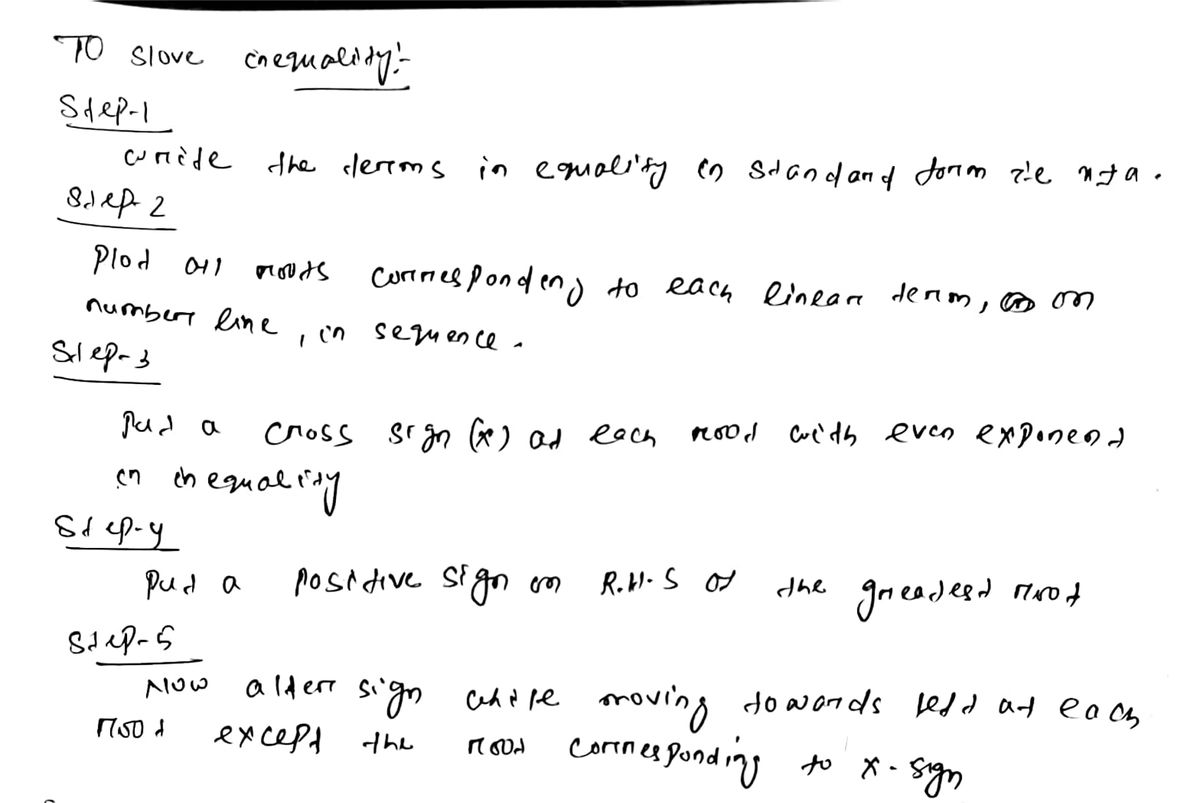 TO slove inequality:-
Step-1
write the terms in equality in standard form i.e x±a.
Step-2
Plot all roots corresponding to each linear term, on
number line, in sequence.
Step-3
Put a cross sign (x) at each root with even exponent
in inequality
Step-4
Put a positive sign on R.H.S of the greatest root
Step-5
Now alter sign while moving towards left at each
root except the root corresponding to x-sign